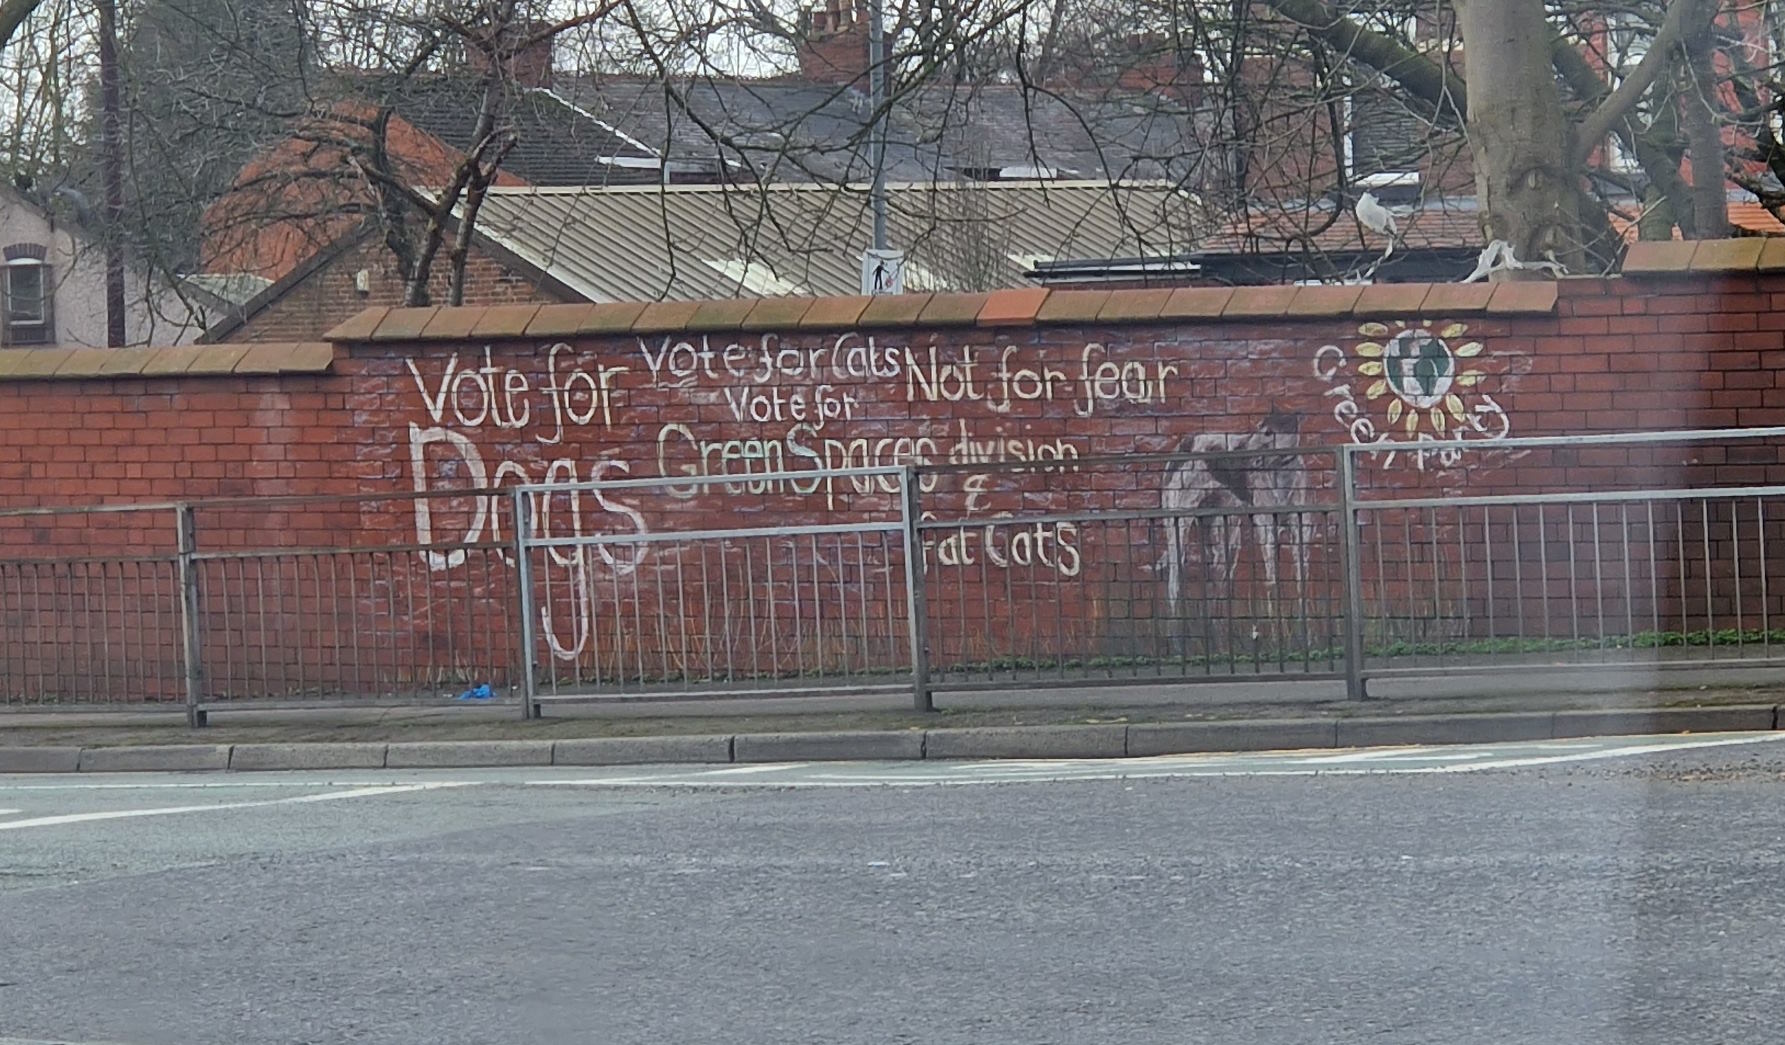 Vote for
Dogs
Vote for Cats
Vote for
Green Spaces
Not for fear
division
&
fat Cats
Green Party